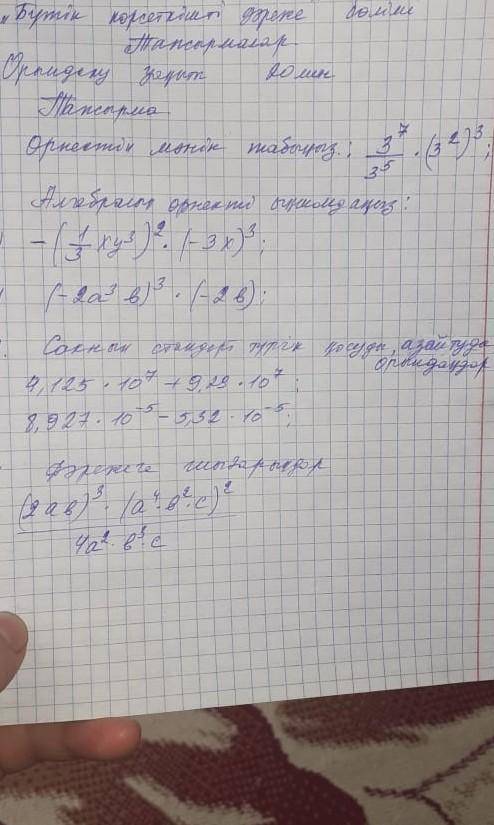 "Бүтін көрсеткішті дәреже бөлімі
Тапсырмалар
Орындау уақыт 20 мин
Тапсырма
Өрнектің мәнін табыңыз: 3^7/3^5 · (3^2)^3;
Алгебралық өрнекті ықшамдаңыз:
-(1/3 xy^3)^2 · (-3x)^3;
(-2a^3 b)^3 · (-2b);
Санның стандарт түрін қосуды, азайтуды
орындаңдар
4,125 · 10^7 + 9,29 · 10^7;
8,927 · 10^-5 - 5,32 · 10^-5;
дәрежеге шығарыңдар
(2ab)^3 · (a^4 · b^2 · c)^2 / 4a^2 · b^3 · c